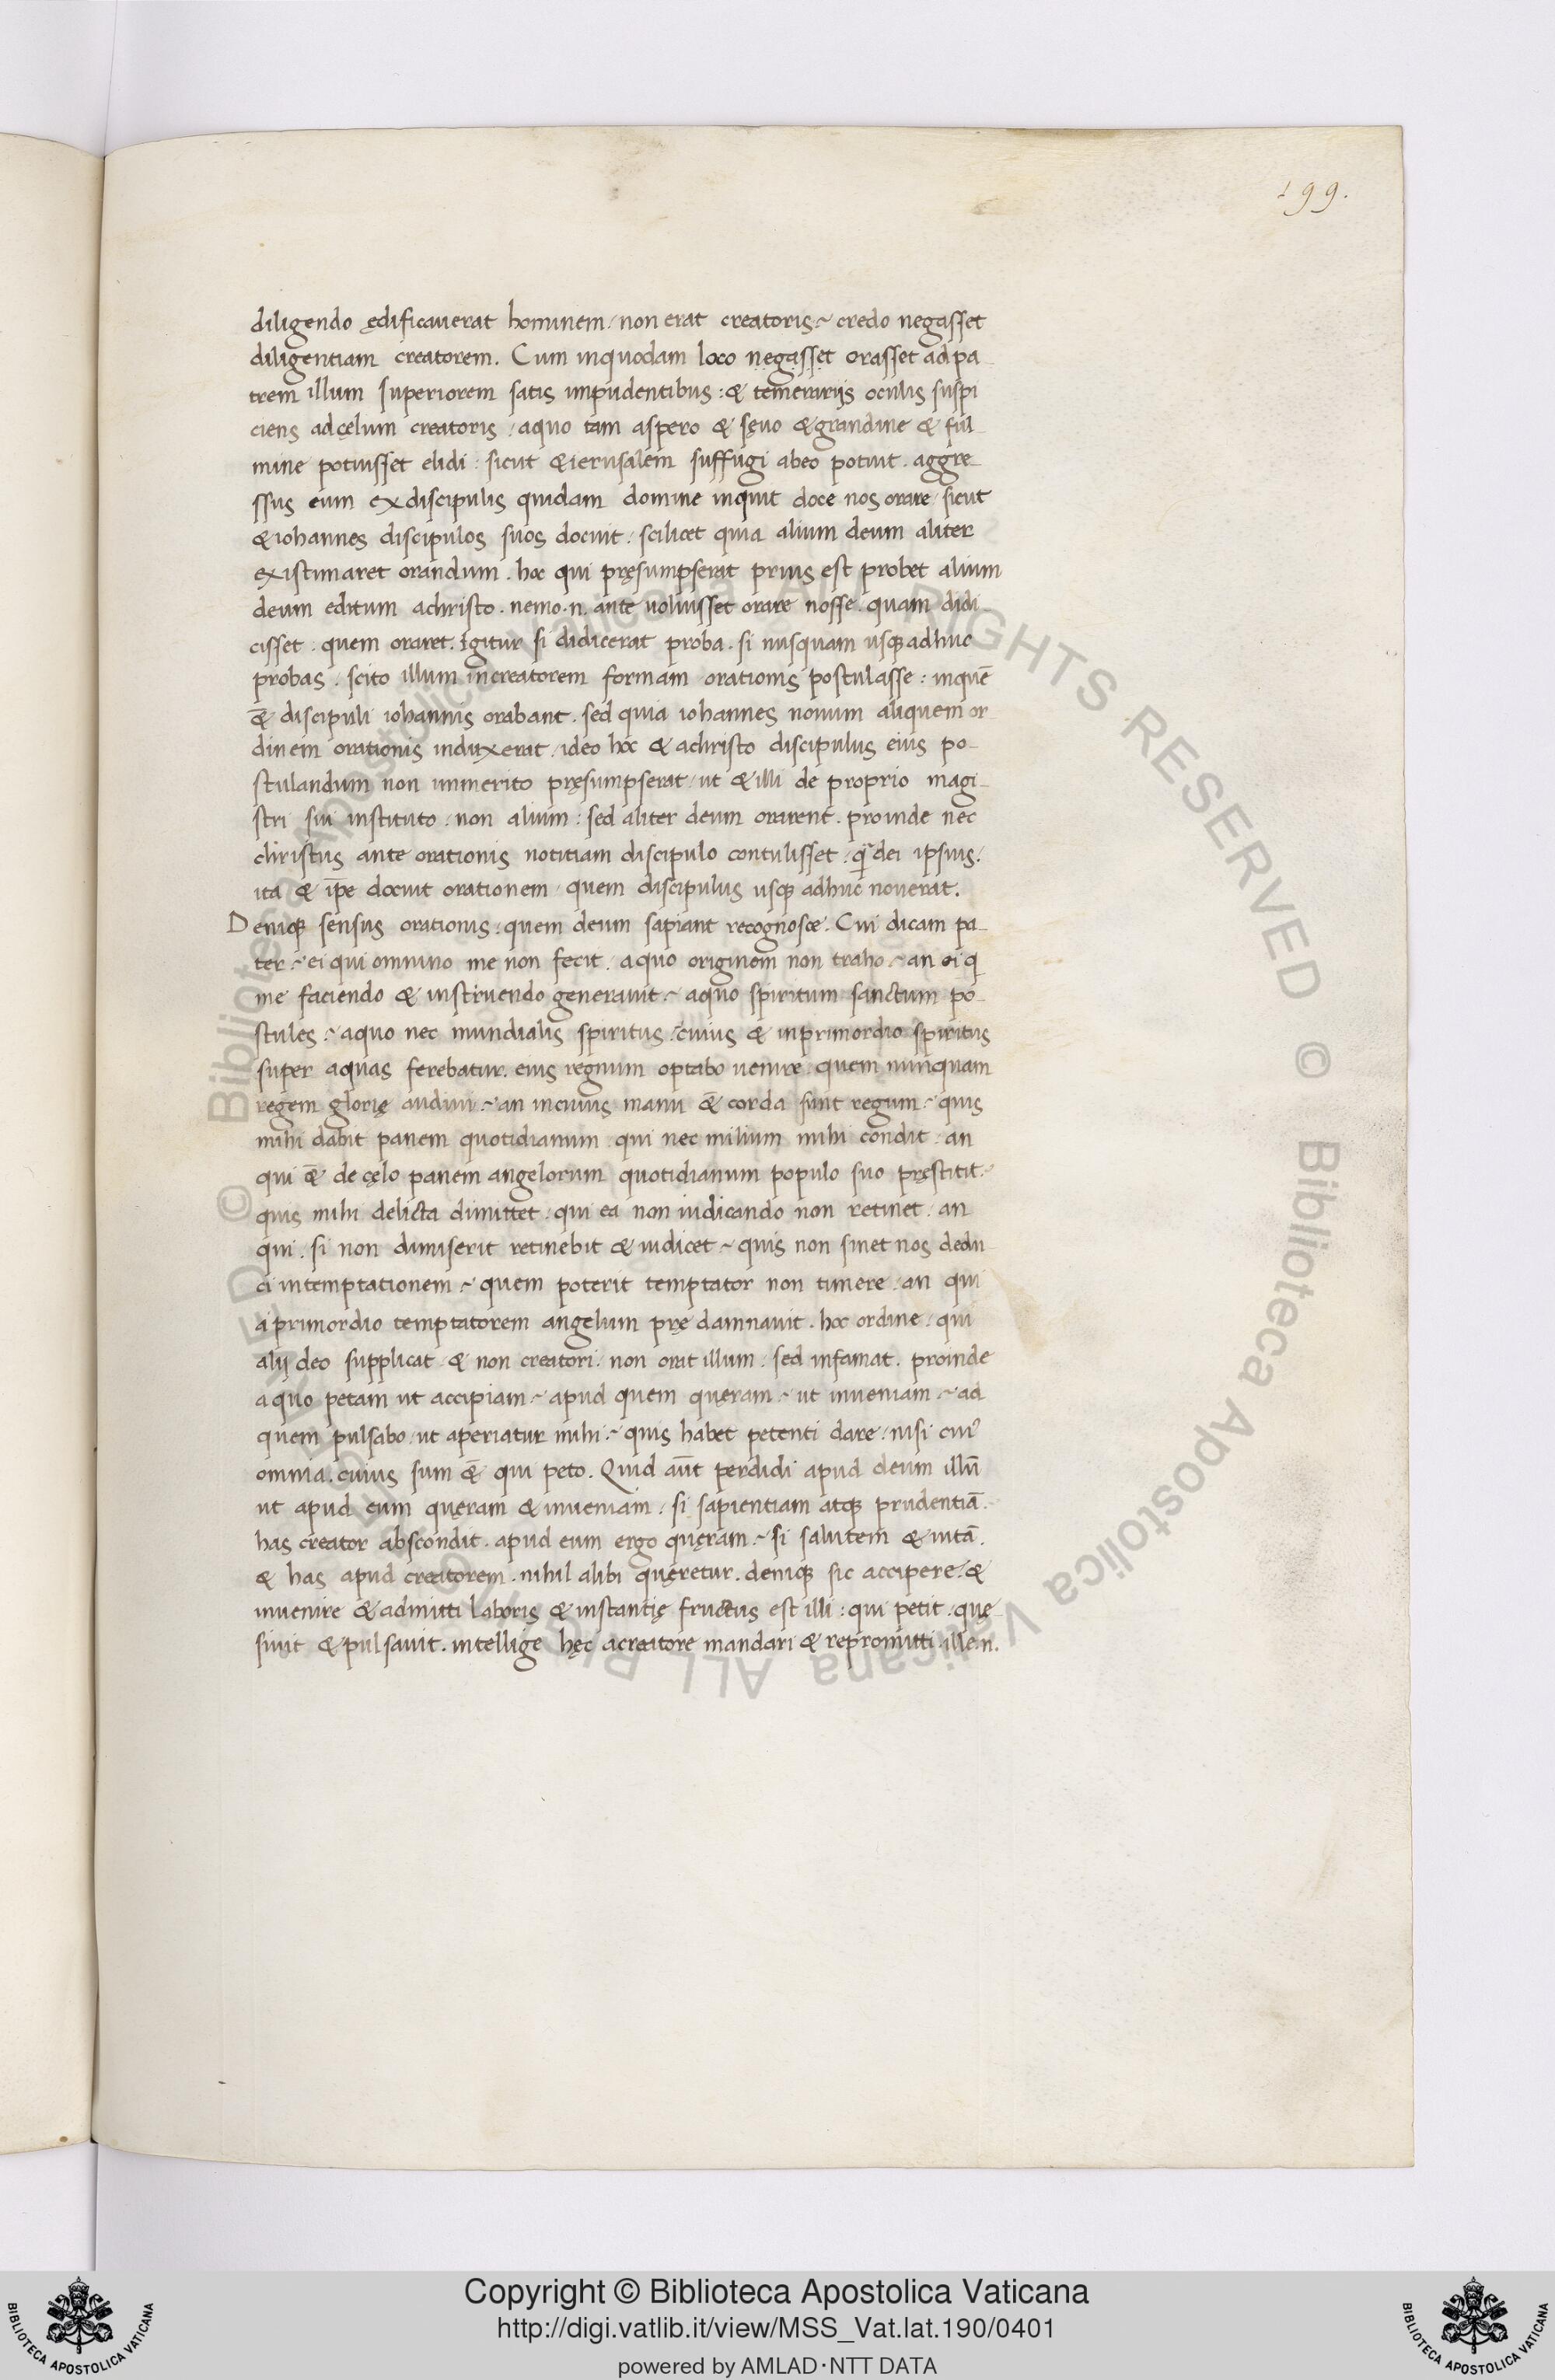 199.
diligendo ędificauerat hominem. non erat creatoris. credo negasset
diligentiam creatorem. Cum inquodam loco negasset orasset adpa
trem illum superiorem satis impudentibus: & temerarijs oculis suspi
ciens adcęlum creatoris. aquo tam aspero & sęuo & grandine & ful-
mine potuisset elidi: sicut & ierusalem suffugi abeo potuit. aggre-
ssus eum exdiscipulis quidam domine inquit doce nos orare sicut
& iohannes discipulos suos docuit. scilicet quia alium deum aliter
existimaret orandum. hoc qui pręsumpserat prius est probet alium
deum editum achristo. nemo .n. ante uoluisset orare nosse. quam didi-
cisset. quem oraret. Igitur si didicerat proba. si nusquam usq adhuc
probas. scito illum increatorem formam orationis postulasse: inquē
& discipuli iohannis orabant. sed quia iohannes nouum aliquem or
dinem orationis induxerat. ideo hoc & achristo discipulus eius po-
stulandum non immerito pręsumpserat. ut & illi de proprio magi-
stri sui instituto. non alium: sed aliter deum orarent. proinde nec
christus ante orationis notitiam discipulo contulisset. q̄ dei ipsius.
ita & ip̄e docuit orationem. quem discipulus usq adhuc nouerat.
Deniq sensus orationis. quem deum sapiant recognosce. Cui dicam pa-
ter. ei qui omnino me non fecit. aquo originem non traho. an ei q
me faciendo & instruendo generauit. aquo spiritum sanctum po-
stules. aquo nec mundialis spiritus. cuius & inprimordio spiritus
super aquas ferebatur. eius regnum optabo uenire. quem nunquam
regem glorię audiui. an incuius manu & corda sunt regum. quis
mihi dabit panem quotidianum. qui nec milium mihi condit. an
qui & de cęlo panem angelorum quotidianum populo suo pręstitit.
quis mihi delicta dimittet. qui ea non iudicando non retinet. an
qui. si non dimiserit retinebit & iudicet. quis non sinet nos dedu-
ci intemptationem. quem poterit temptator non timere. an qui
aprimordio temptatorem angelum prę damnauit. hoc ordine. qui
alij deo supplicat & non creatori. non orat illum. sed infamat. proinde
aquo petam ut accipiam. apud quem quęram. ut inueniam. ad
quem pulsabo. ut aperiatur mihi. quis habet petenti dare. nisi cui9
omnia. cuius sum & qui peto. Quid aūt perdidi apud deum illū
ut apud eum quęram & inueniam. si sapientiam atq prudentiā.
has creator abscondit. apud eum ergo quęram. si salutem & uitā.
& has apud creatorem. nihil alibi quęretur. deniq sic accipere. &
inuenire & admitti laboris & instantię fructus est illi: qui petit. quę-
siuit & pulsauit. intellige hęc acreatore mandari & repromitti. ille .n.
© Biblioteca Apostolica Vaticana ALL RIGHTS RESERVED
Copyright © Biblioteca Apostolica Vaticana
http://digi.vatlib.it/view/MSS_Vat.lat.190/0401
powered by AMLAD·NTT DATA
BIBLIOTECA APOSTOLICA VATICANA
BIBLIOTECA APOSTOLICA VATICANA